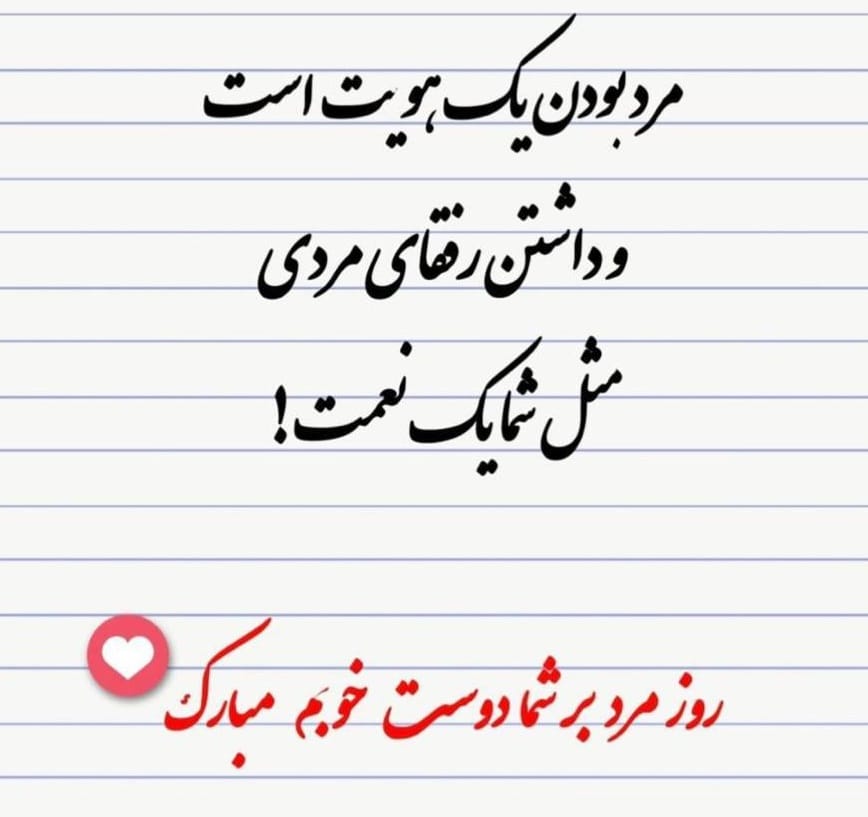 مرد بودن یک هویت است
و داشتن رفقای مردی
مثل شما یک نعمت!
روز مرد بر شما دوست خوبم مبارک